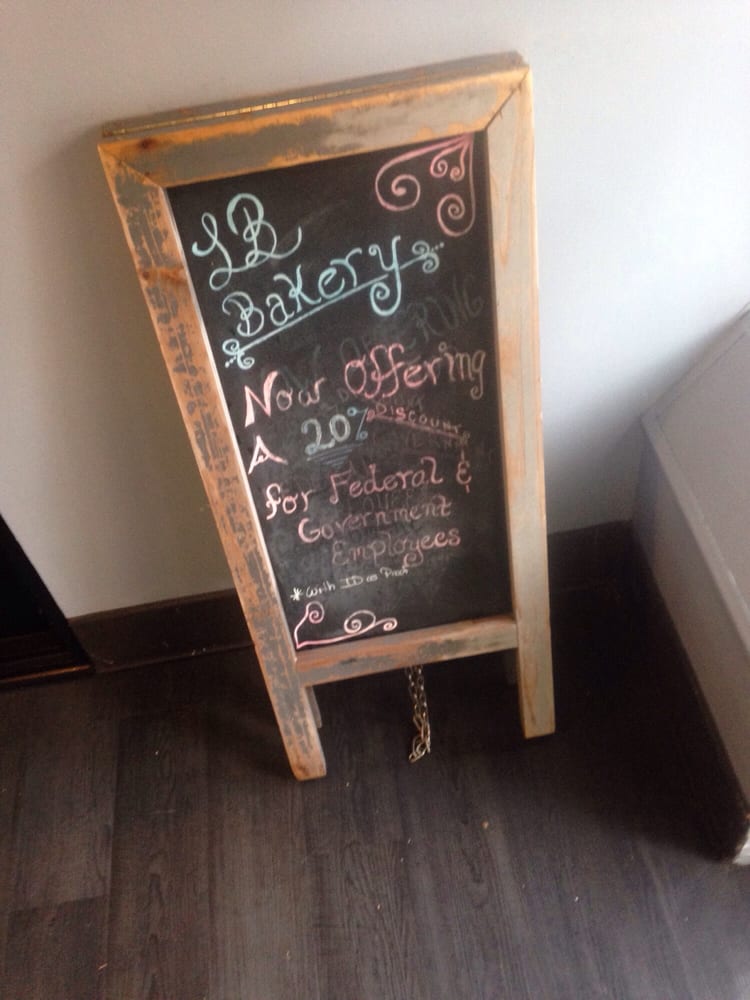 LB
Bakery
Now Offering
A 20% DISCOUNT
for Federal &
Government
Employees
*With ID as Proof